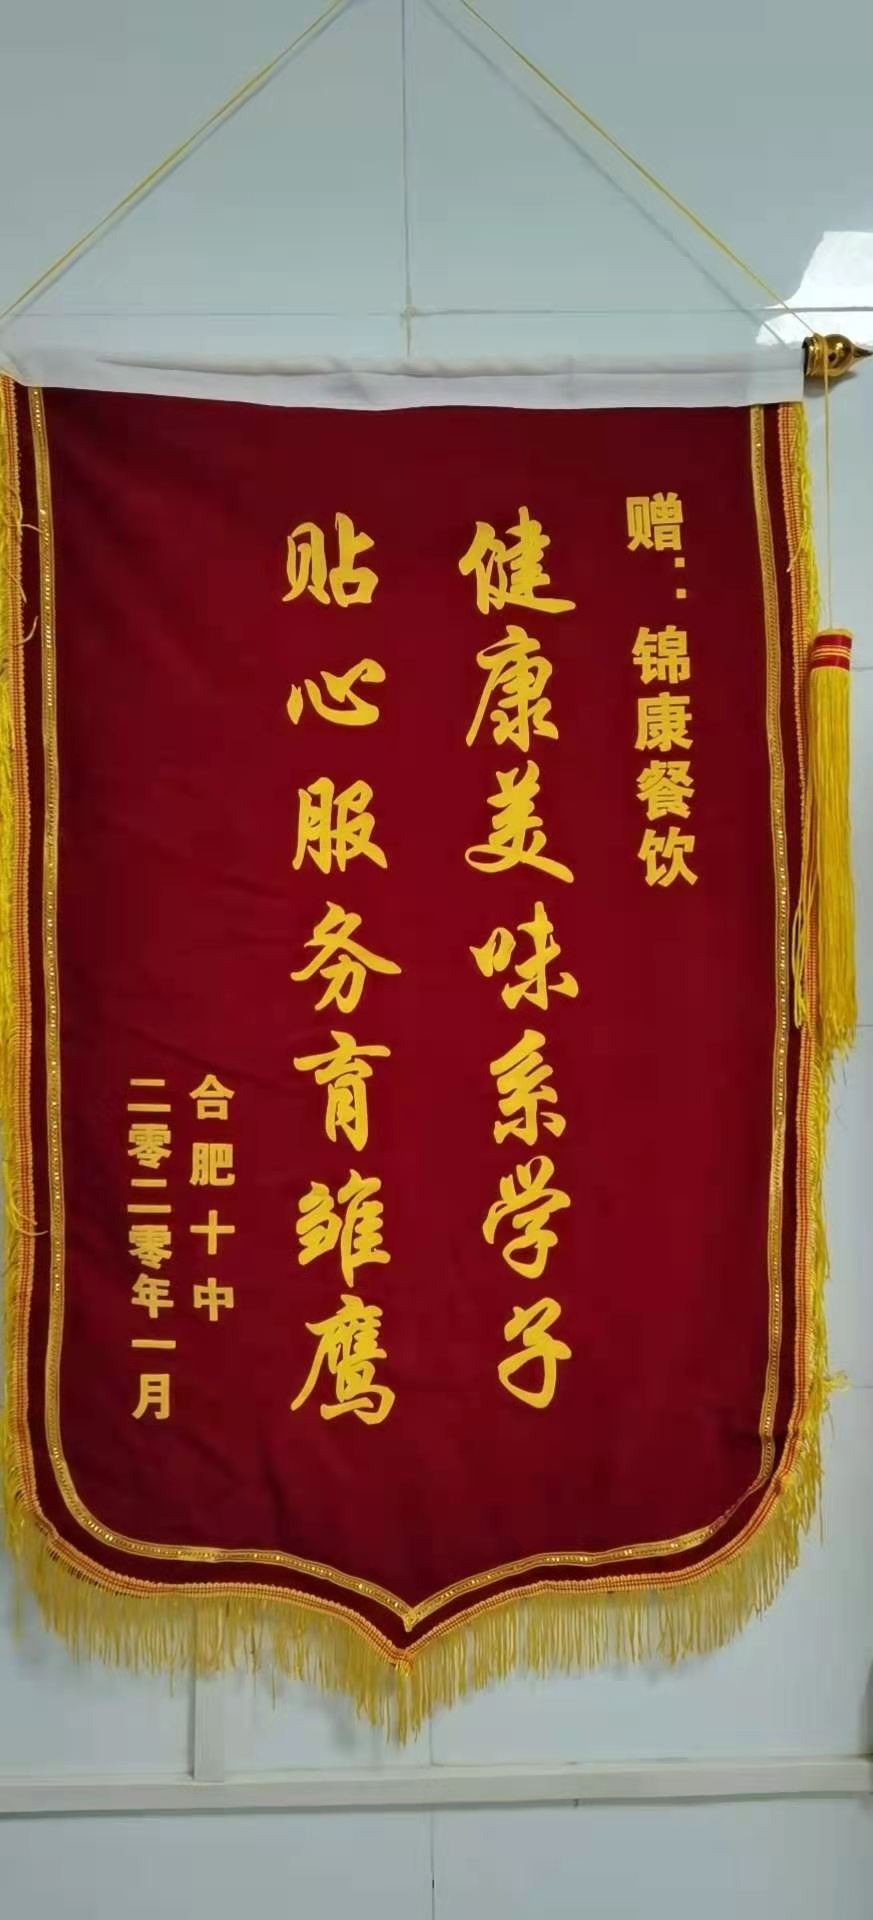 赠：锦康餐饮
健康美味系学子
贴心服务育雏鹰
合肥十中
二零二零年一月